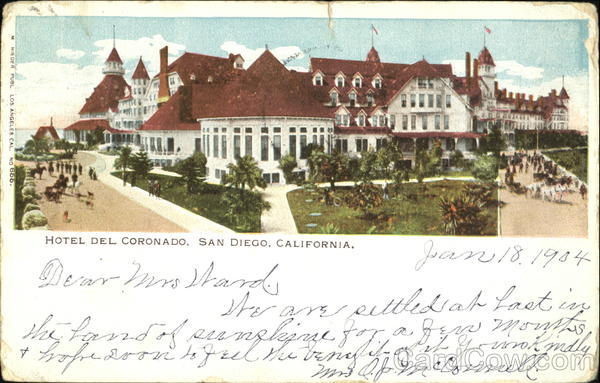 M. RIEDER PUBL. LOS ANGELES CAL. NO 668.
HOTEL DEL CORONADO, SAN DIEGO, CALIFORNIA.
Jan 18. 1904
Dear Mrs Ward.
We are settled at last in
the land of sunshine for a few months
& hope soon to feel the benefit of it Yours kindly
Mrs McConnell
CardCow.com